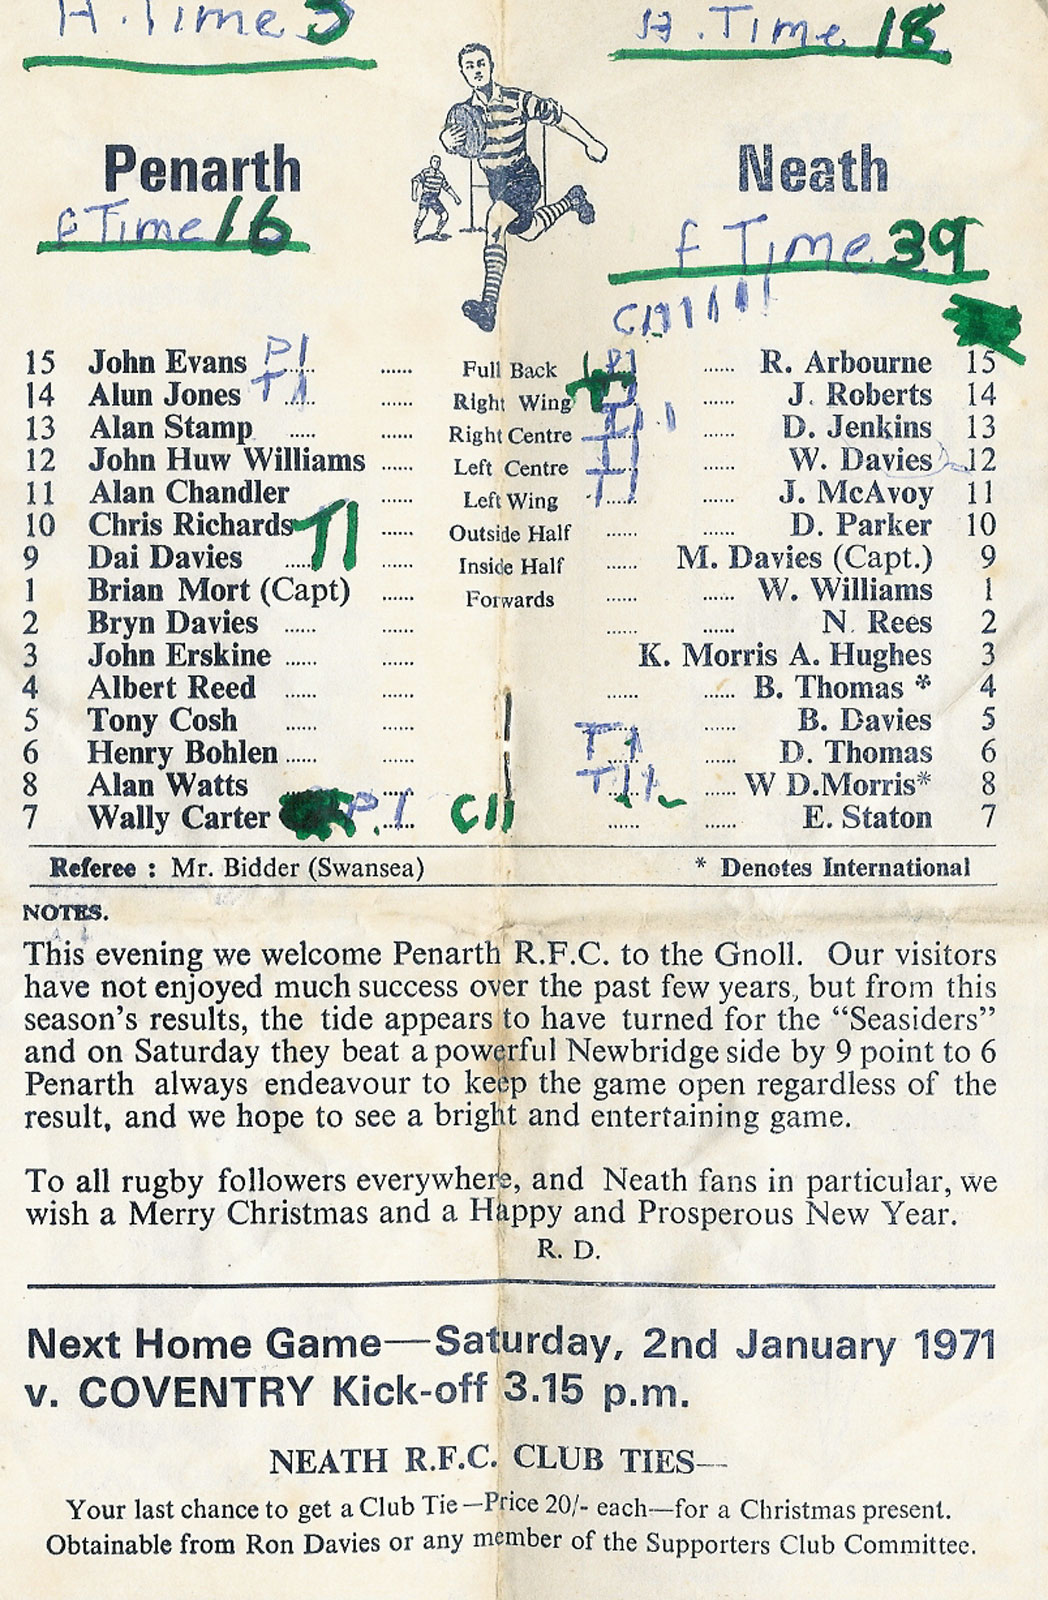 H. Time 3
H. Time 18
Penarth Neath
F Time 16
F Time 39
C 1 1 1 1 1 1
15 John Evans P1 ...... Full Back P1 ...... R. Arbourne 15
14 Alun Jones T1 ...... Right Wing ...... J. Roberts 14
13 Alan Stamp ..... ...... Right Centre T1 1 ...... D. Jenkins 13
12 John Huw Williams ...... Left Centre T1 ...... W. Davies 12
11 Alan Chandler Left Wing T1 ...... J. McAvoy 11
10 Chris Richards T1 ...... Outside Half ...... D. Parker 10
9 Dai Davies ...... ...... Inside Half ...... M. Davies (Capt.) 9
1 Brian Mort (Capt) ...... Forwards ...... ...... W. Williams 1
2 Bryn Davies ...... ...... ...... ...... N. Rees 2
3 John Erskine ...... ...... K. Morris A. Hughes 3
4 Albert Reed ...... ...... ...... ...... B. Thomas * 4
5 Tony Cosh ...... ...... ...... B. Davies 5
6 Henry Bohlen ...... ...... T1 ...... D. Thomas 6
8 Alan Watts ...... T11 ...... W D.Morris* 8
7 Wally Carter P.1 ...... C11 ...... ...... E. Staton 7
Referee : Mr. Bidder (Swansea) * Denotes International
NOTES.
This evening we welcome Penarth R.F.C. to the Gnoll. Our visitors
have not enjoyed much success over the past few years, but from this
season's results, the tide appears to have turned for the "Seasiders"
and on Saturday they beat a powerful Newbridge side by 9 point to 6
Penarth always endeavour to keep the game open regardless of the
result, and we hope to see a bright and entertaining game.
To all rugby followers everywhere, and Neath fans in particular, we
wish a Merry Christmas and a Happy and Prosperous New Year.
R. D.
Next Home Game—Saturday, 2nd January 1971
v. COVENTRY Kick-off 3.15 p.m.
NEATH R.F.C. CLUB TIES—
Your last chance to get a Club Tie—Price 20/- each—for a Christmas present.
Obtainable from Ron Davies or any member of the Supporters Club Committee.